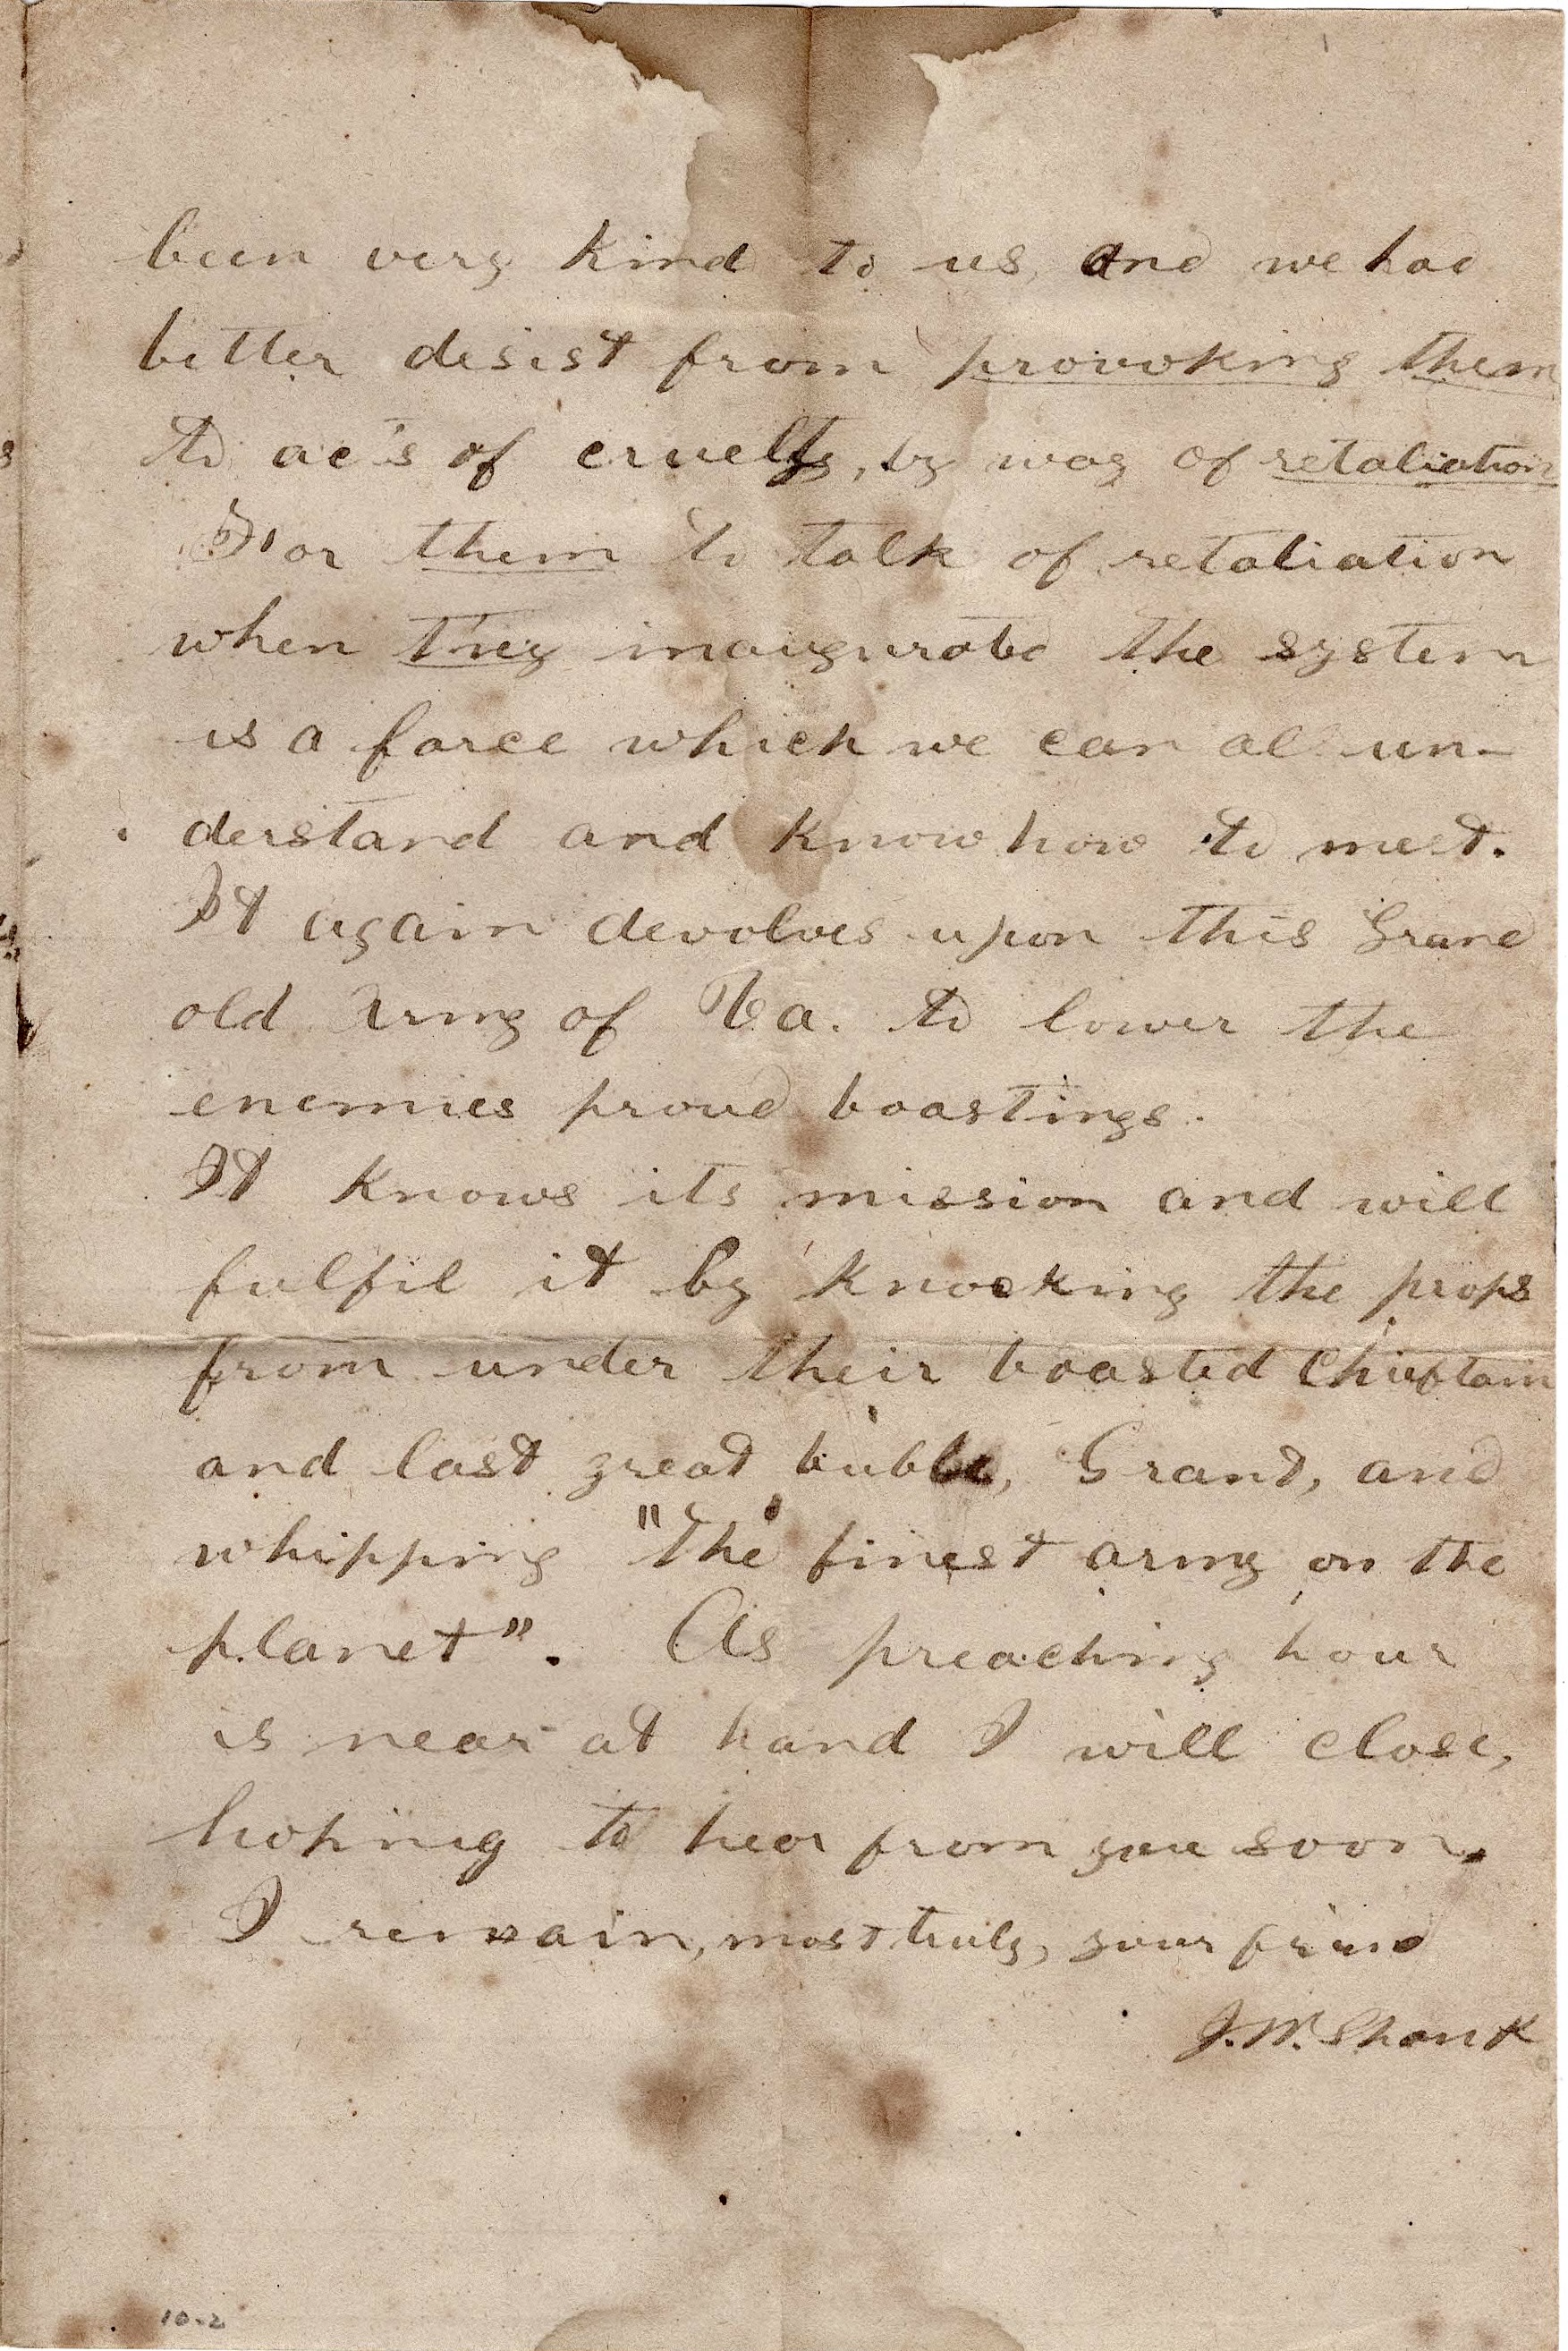 been very kind to us, and we had
better desist from provoking them
to acts of cruelty, by way of retaliation
For them to talk of retaliation
when they inaugurated the system
is a farce which we can all un-
derstand and know how to meet.
It again devolves upon this Grand
old Army of Va. to lower the
enemies proud boastings.
It knows its mission and will
fulfil it by knocking the props
from under their boasted Chieftain
and last great bubble, Grant, and
whipping "the finest army on the
planet". As preaching hour
is near at hand I will close,
hoping to hear from you soon.
I remain, most truly, your friend
J.W. Shank
10-2